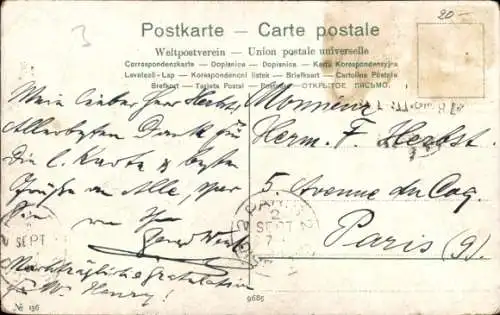 3
20.-
Postkarte — Carte postale
Weltpostverein — Union postale universelle
Correspondenzkarte — Dopisnice — Dopisnica — Karta Korespondencyjna
Levelező-Lap — Korespondenční lístek — Briefkaart — Cartolina Postale
Brefkort — Tarjeta Postal — ОТКРЫТОЕ ПИСЬМО.
Mein lieber Herr Herbst,
Allerbesten Dank für
die l. Karte & besten
Grüße an Alle,
von Ihr
Nachträgliche Gratulation
für Mr. Henry!
Monsieur
Herm. F. Herbst.
5, Avenue du Coq.
Paris (9).
PARIS
2
SEPT
7
SEPT
№ 196
9685